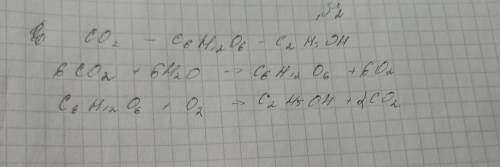 CO2 - C6H12O6 - C2H5OH
6CO2 + 6H2O → C6H12O6 + 6O2
C6H12O6 + O2 → C2H5OH + 2CO2